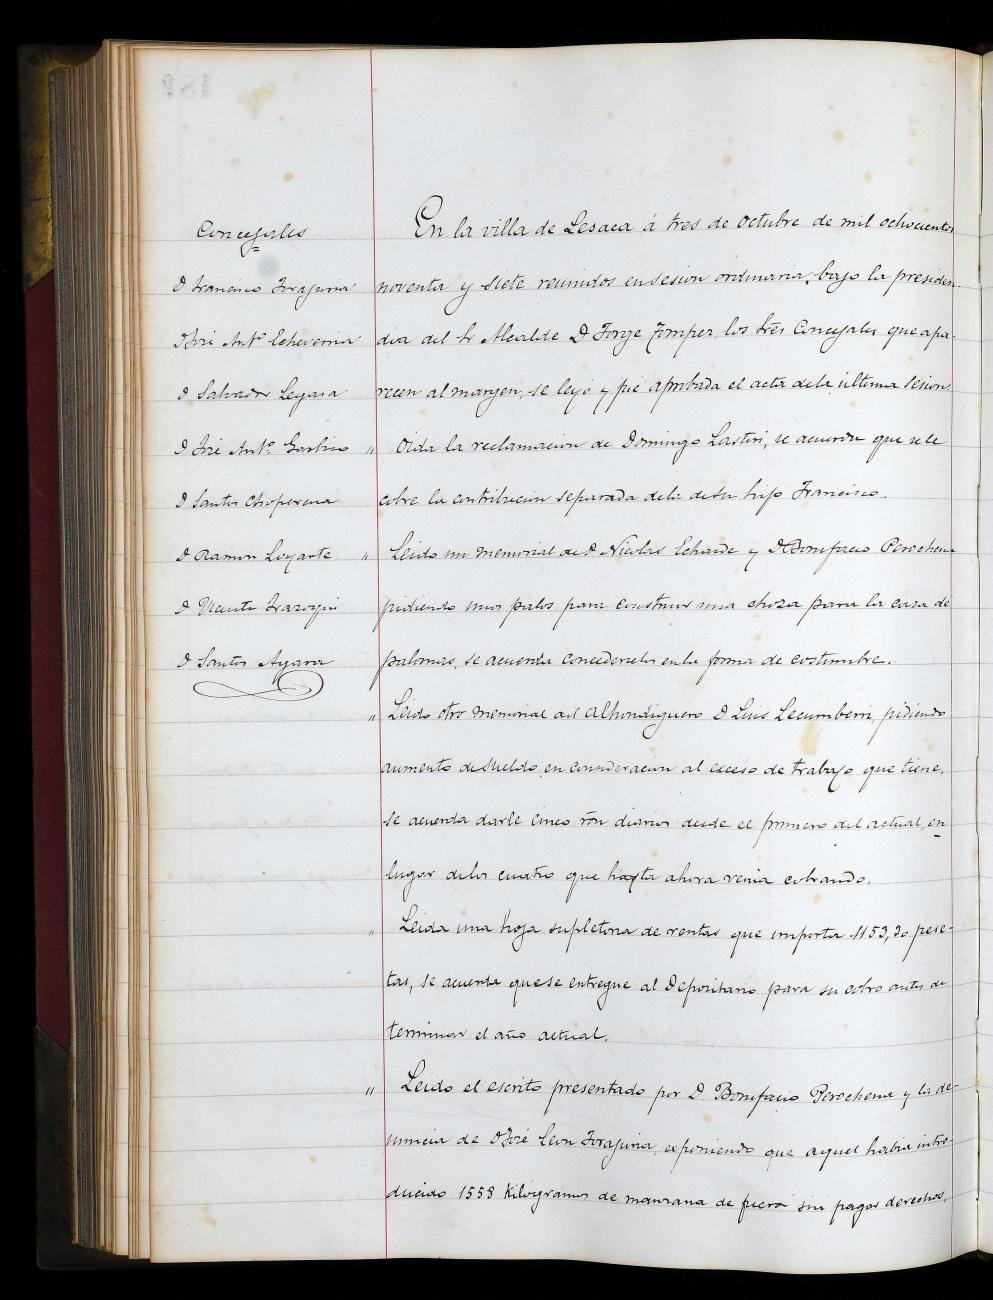 Concejales
D Francisco Irajuria
D José Antº Echeverria
D Salvador Legasa
D José Antº Gorbiso
D Santos Choperena
D Ramon Loyarte
D Vicente Irazoqui
D Santos Ayara
En la villa de Lesaca á tres de Octubre de mil ochocientos
noventa y siete reunidos en sesion ordinaria, bajo la presiden-
dia del Sr Alcalde D Jorge Jomper, los tres Concejales que apa-
recen al margen, se leyó y fué aprobada el acta dela última sesion.
" Oida la reclamacion de Domingo Lastiri, se acuerda que se le
cobre la contribucion separada dela desu hijo Francisco.
" Leido un memorial de D Nicolas Echaide y D Bonifacio Perochena
pidiendo unos palos para construir una choza para la casa de
palomas, se acuerda concederselos en la forma de costumbre.
" Leido otro memorial del alhondiguero D Luis Lecumberri, pidiendo
aumento de sueldo en consideracion al exceso de trabajo que tiene,
se acuerda darle cinco rón diarios desde el primero del actual, en
lugar delos cuatro que hasta ahora venia cobrando.
" Leida una hoja supletoria de rentas que importa 1153,30 pese-
tas, se acuerda quese entregue al Depositario para su cobro antes de
terminar el año actual.
" Leido el escrito presentado por D Bonifacio Perochena y la de-
nuncia de D José Leon Irajuria, exponiendo que aquel habia intro-
ducido 1558 Kilógramos de manzana de fuera sin pagar derechos,